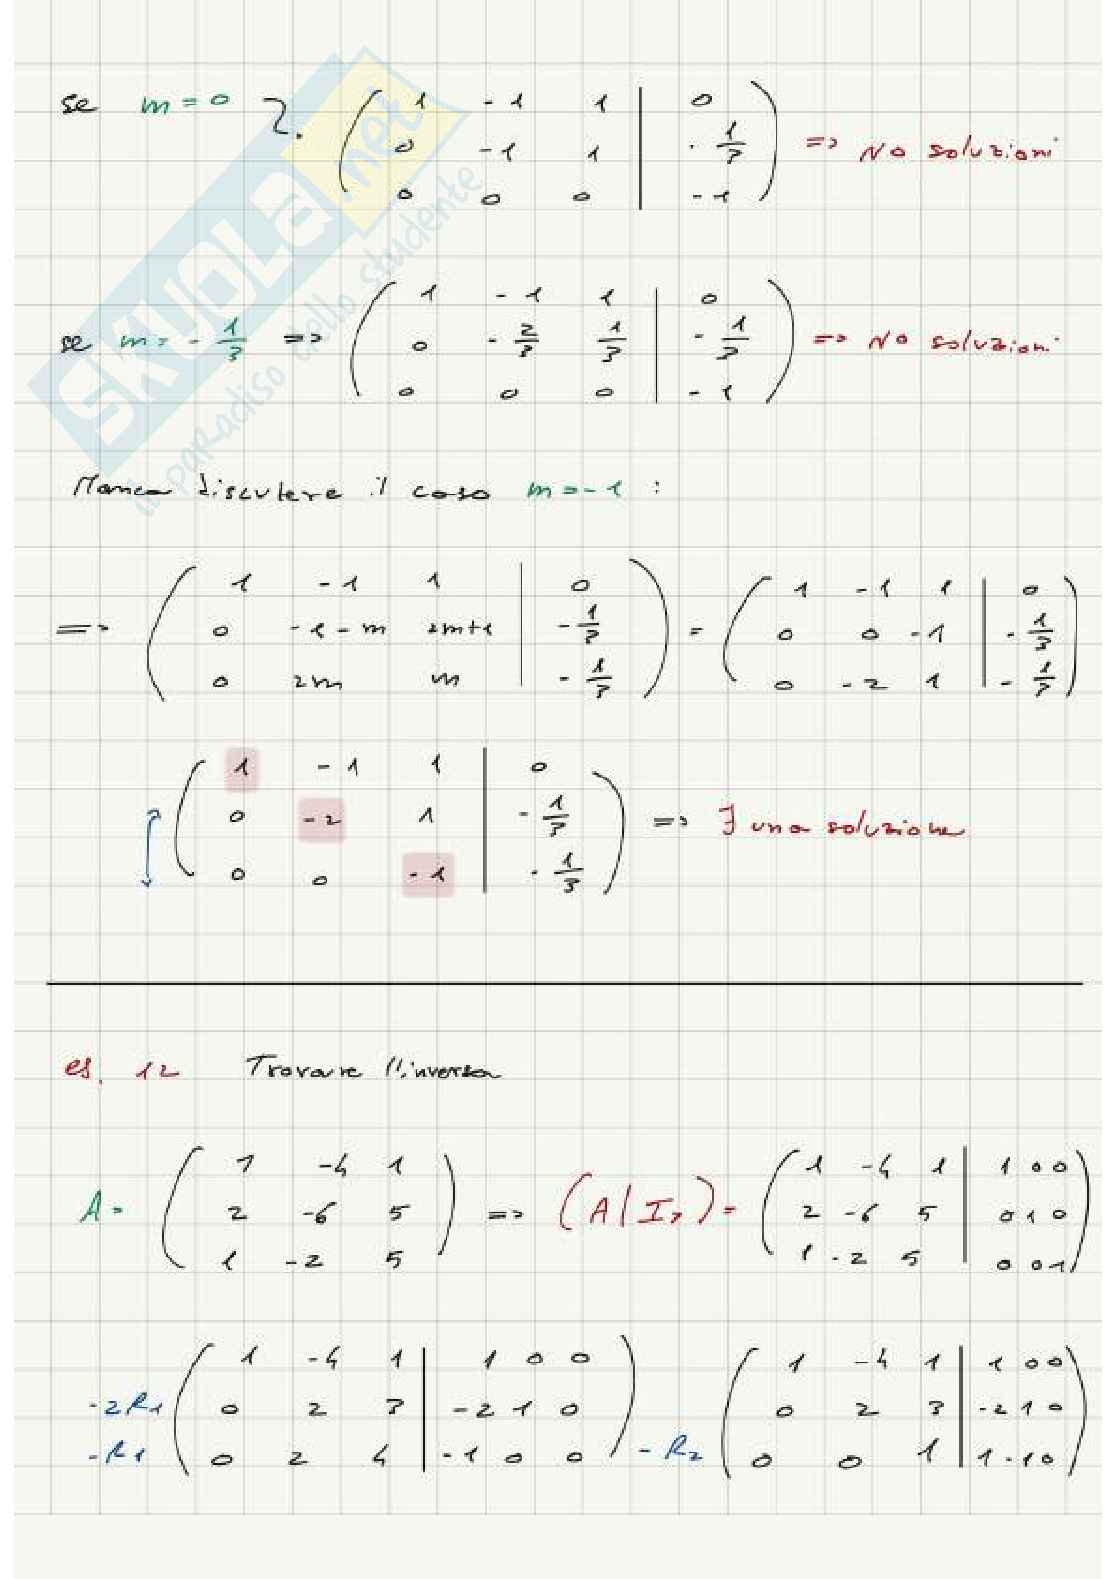 se m = 0 => ( 1 -1 1 | 0
0 -1 1 | -1/3
0 0 0 | -1 ) => No soluzioni
se m = -1/3 => ( 1 -1 1 | 0
0 -2/3 1/3 | -1/3
0 0 0 | -1 ) => No soluzioni
Manca discutere il caso m = -1 :
=> ( 1 -1 1 | 0
0 -1-m 2m+1 | -1/3
0 2m m | -1/3 ) = ( 1 -1 1 | 0
0 0 -1 | -1/3
0 -2 1 | -1/3 )
( 1 -1 1 | 0
0 -2 1 | -1/3
0 0 -1 | -1/3 ) => ∃ una soluzione
es. 12 Trovare l'inversa
A = ( 1 -4 1
2 -6 5
1 -2 5 ) => (A | I3) = ( 1 -4 1 | 1 0 0
2 -6 5 | 0 1 0
1 -2 5 | 0 0 1 )
-2R1
-R1
( 1 -4 1 | 1 0 0
0 2 3 | -2 1 0
0 2 4 | -1 0 0 ) -R2 ( 1 -4 1 | 1 0 0
0 2 3 | -2 1 0
0 0 1 | 1 -1 0 )
SKUOLA.net
il paradiso dello studente